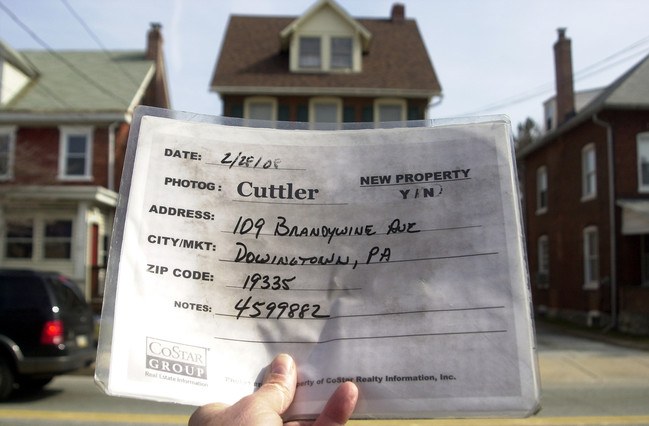 DATE: 2/28/08
PHOTOG: Cuttler
NEW PROPERTY
Y / N
ADDRESS: 109 BRANDYWINE AVE
CITY/MKT: DOWINGTOWN, PA
ZIP CODE: 19335
NOTES: 4599882
COSTAR
GROUP
Real Estate Information
property of CoStar Realty Information, Inc.